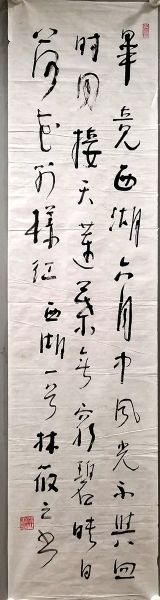 畢竟西湖六月中風光不與四
時同接天蓮葉無窮碧映日
荷花別樣紅西湖一首林筱之书